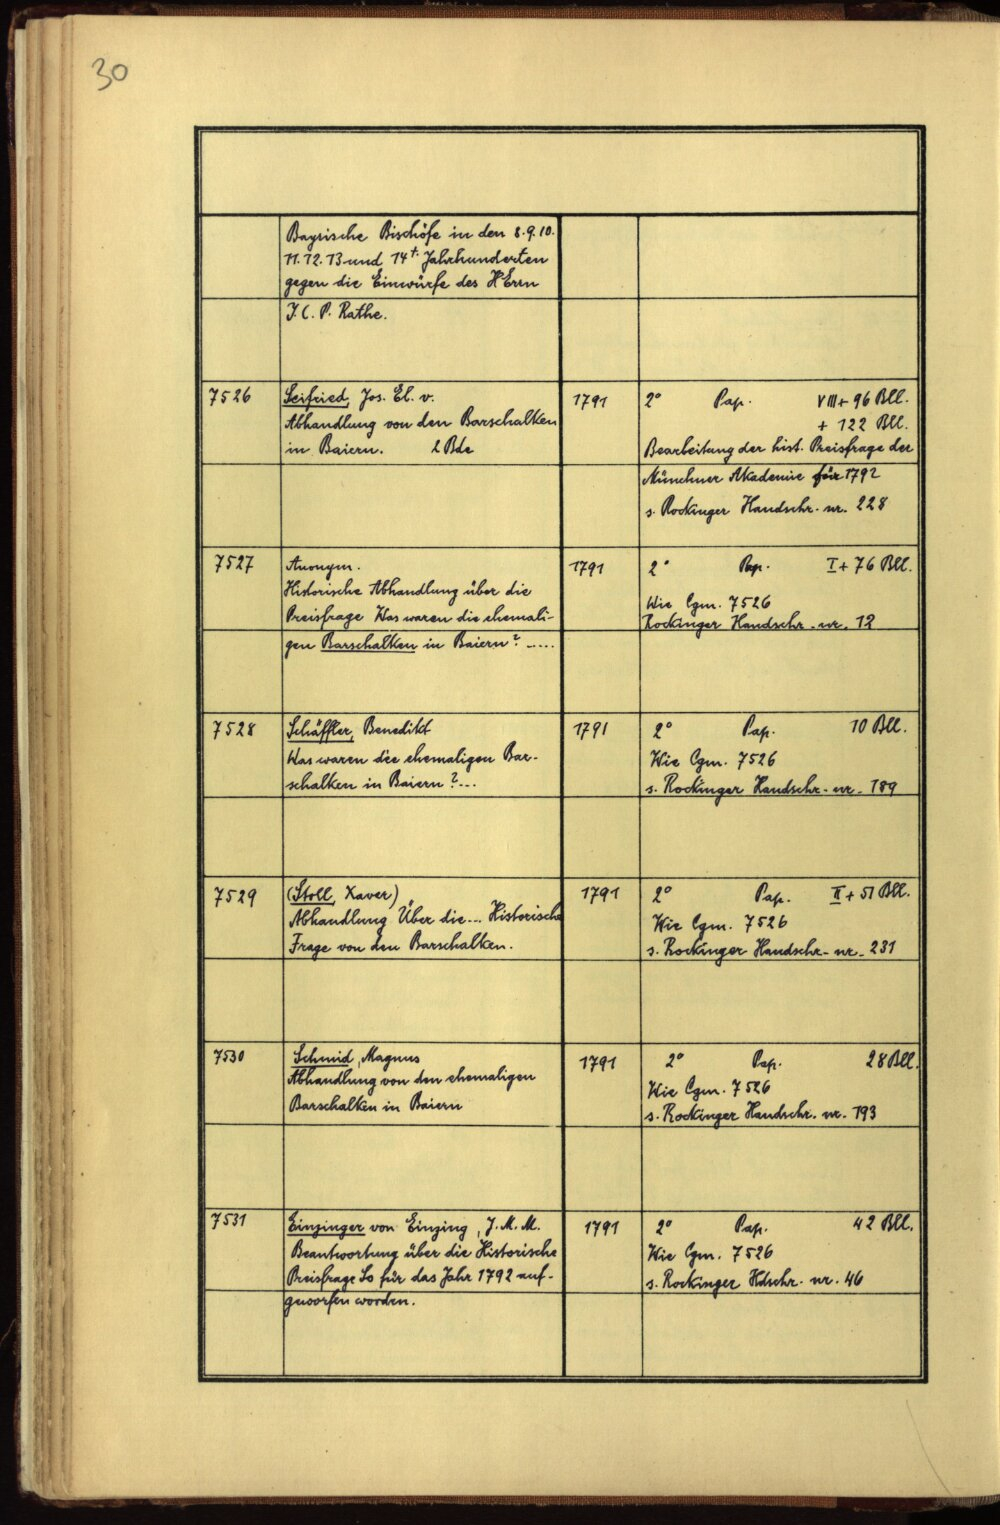 30
Bayrische Bischöfe in den 8. 9. 10.
11. 12. 13 und 14t. Jahrhunderten
gegen die Einwürfe des HErrn
J. C. P. Rathe.
7526 Seifried, Jos. El. v. 1791 2° Pap. VIII + 96 Bll.
+ 122 Bll.
Abhandlung von den Barschalken
in Baiern. 2 Bde Bearbeitung der hist. Preisfrage der
Münchner Akademie für 1792
s. Rockinger Handschr. nr. 228
7527 Anonym. 1791 2° Pap. I + 76 Bll.
Historische Abhandlung über die
Preisfrage Was waren die ehemali- Wie Cgm. 7526
Rockinger Handschr. nr. 12
gen Barschalken in Baiern? .....
7528 Schäffler, Benedikt 1791 2° Pap. 10 Bll.
Was waren die ehemaligen Bar- Wie Cgm. 7526
schalken in Baiern? ... s. Rockinger Handschr. nr. 189
7529 (Stoll, Xaver) 1791 2° Pap. II + 51 Bll.
Abhandlung Über die ... Historische Wie Cgm. 7526
Frage von den Barschalken. s. Rockinger Handschr. nr. 231
7530 Schmid, Magnus 1791 2° Pap. 28 Bll.
Abhandlung von den ehemaligen Wie Cgm. 7526
Barschalken in Baiern s. Rockinger Handschr. nr. 193
7531 Einzinger von Einzing, J. M. M. 1791 2° Pap. 42 Bll.
Beantwortung über die Historische Wie Cgm. 7526
Preisfrage So für das Jahr 1792 auf- s. Rockinger Hdschr. nr. 46
geworfen worden.